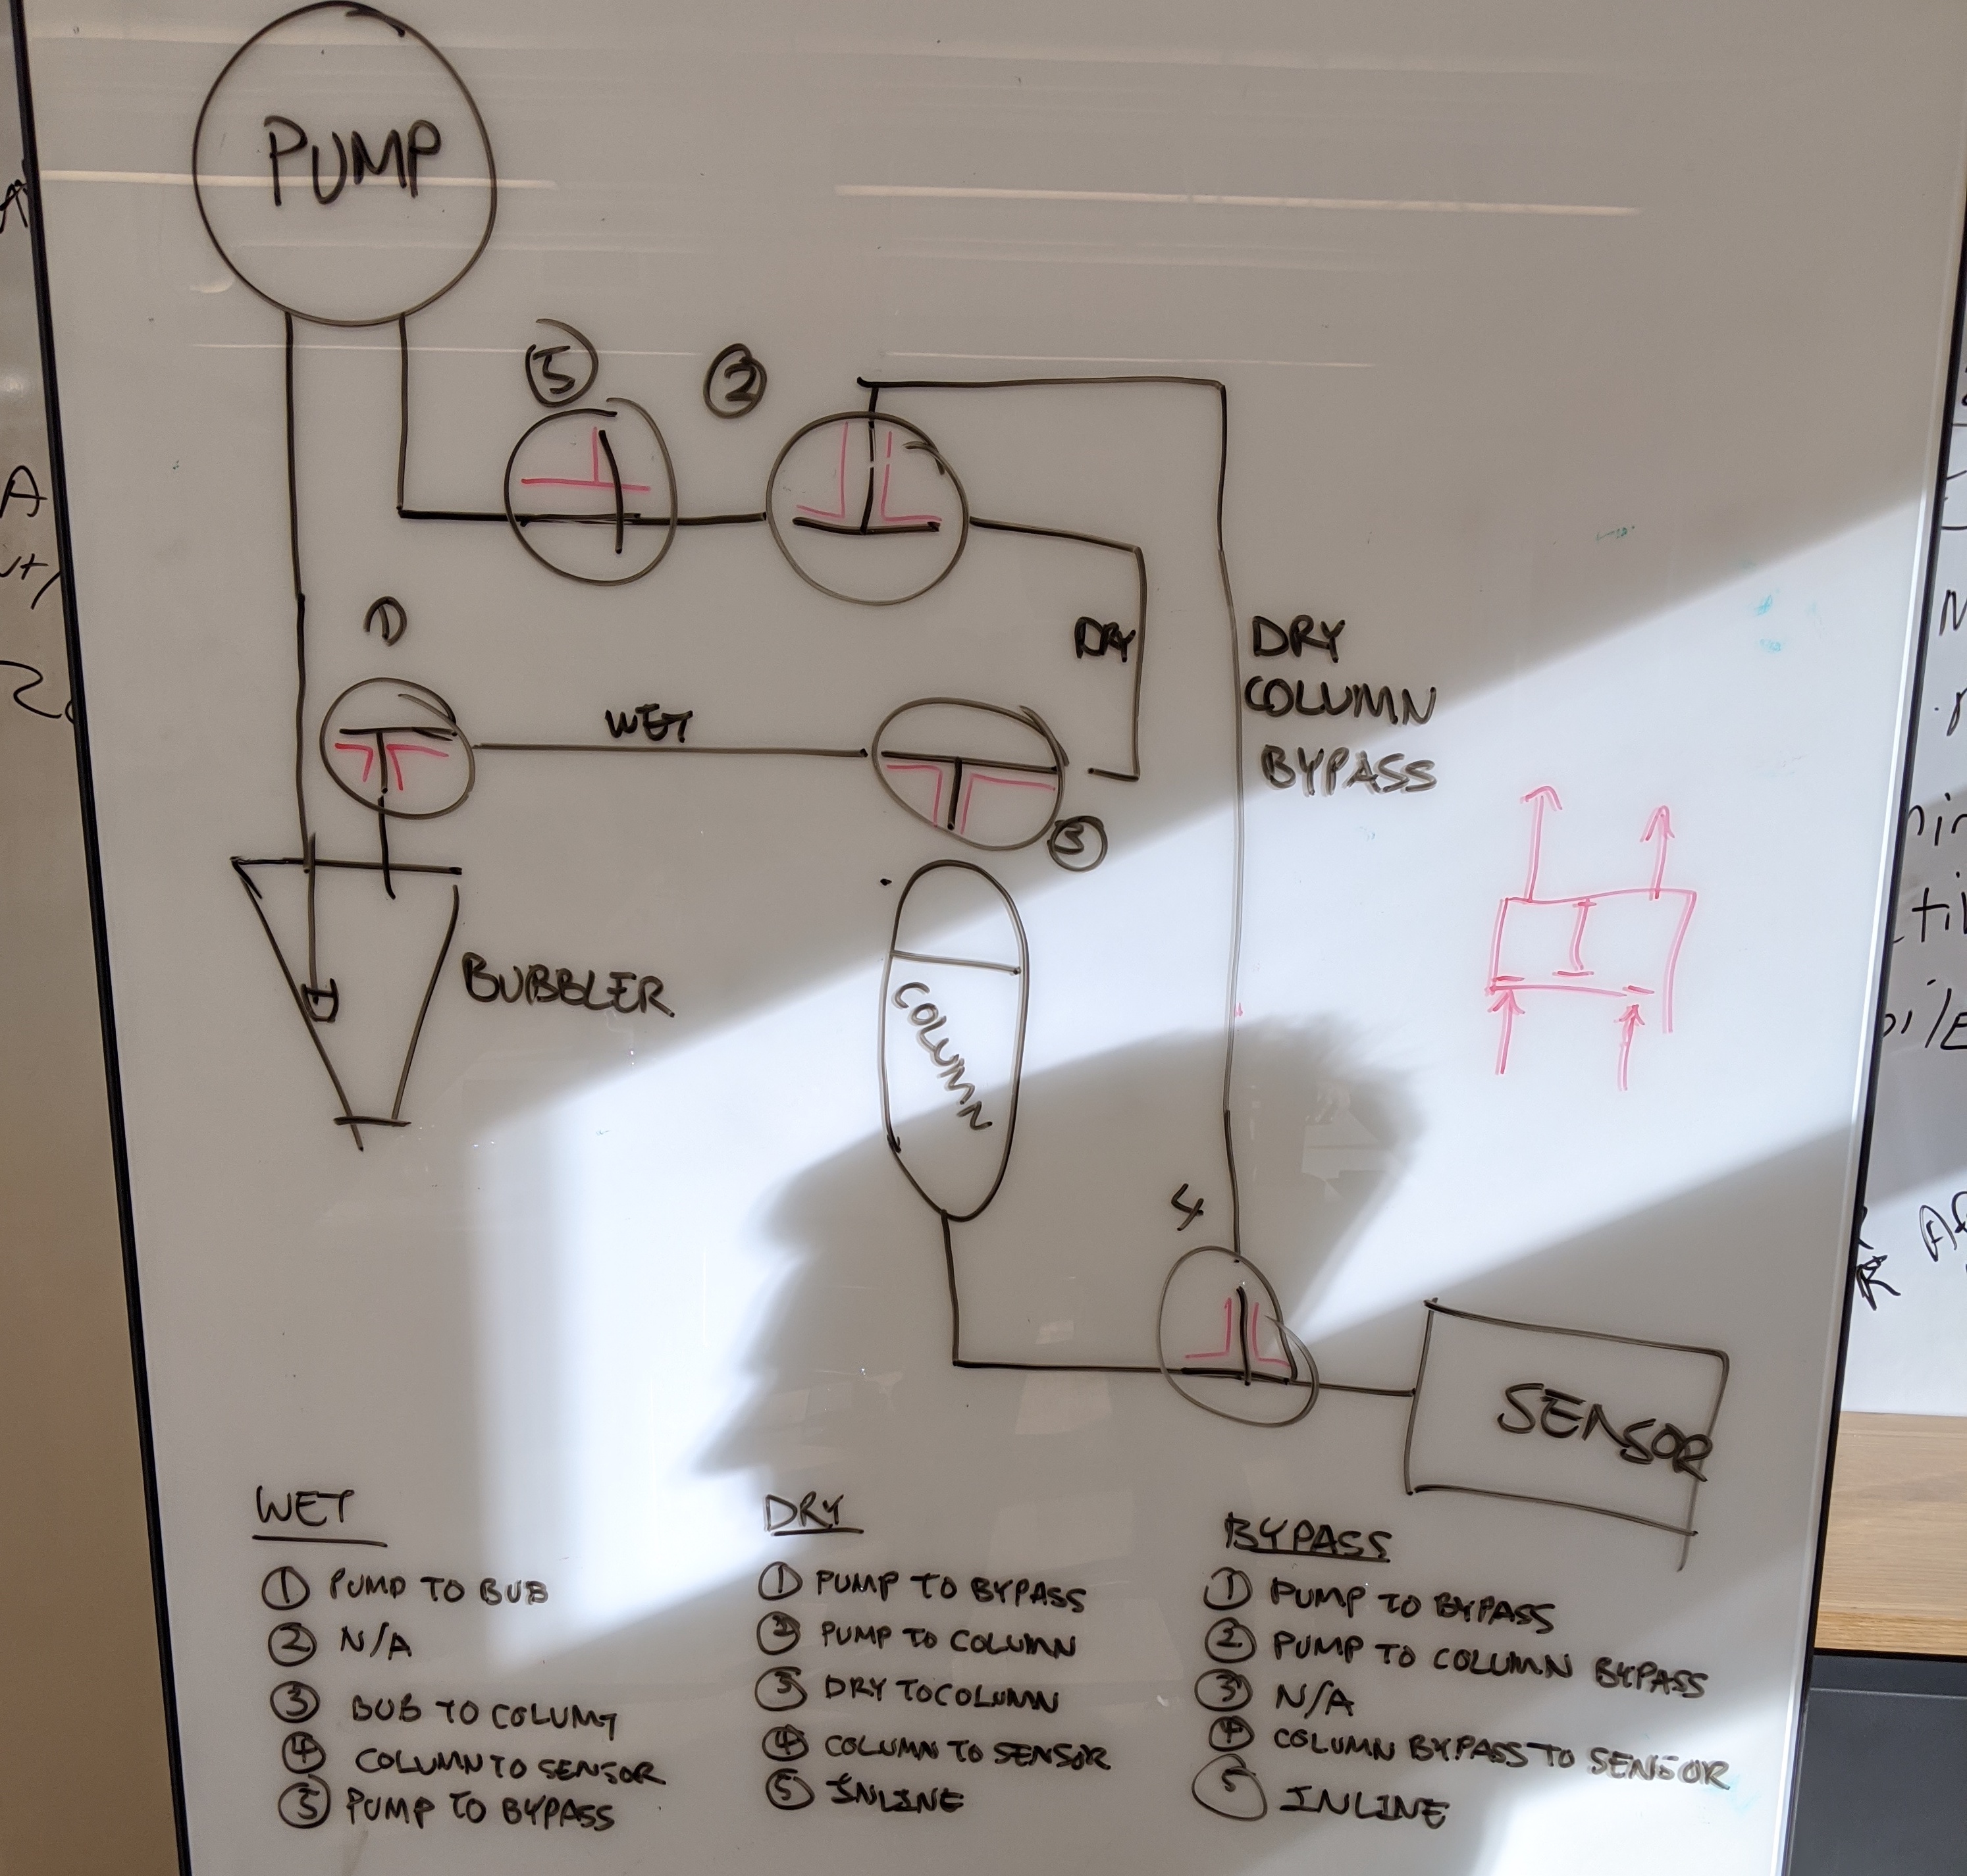 PUMP
5
2
1
WET
DRY
DRY
COLUMN
BYPASS
3
BUBBLER
COLUMN
4
SENSOR
WET
① PUMP TO BUB
② N/A
③ BUB TO COLUMT
④ COLUMN TO SENSOR
⑤ PUMP TO BYPASS
DRY
① PUMP TO BYPASS
② PUMP TO COLUMN
③ DRY TO COLUMN
④ COLUMN TO SENSOR
⑤ INLINE
BYPASS
① PUMP TO BYPASS
② PUMP TO COLUMN BYPASS
③ N/A
④ COLUMN BYPASS TO SENSOR
⑤ INLINE